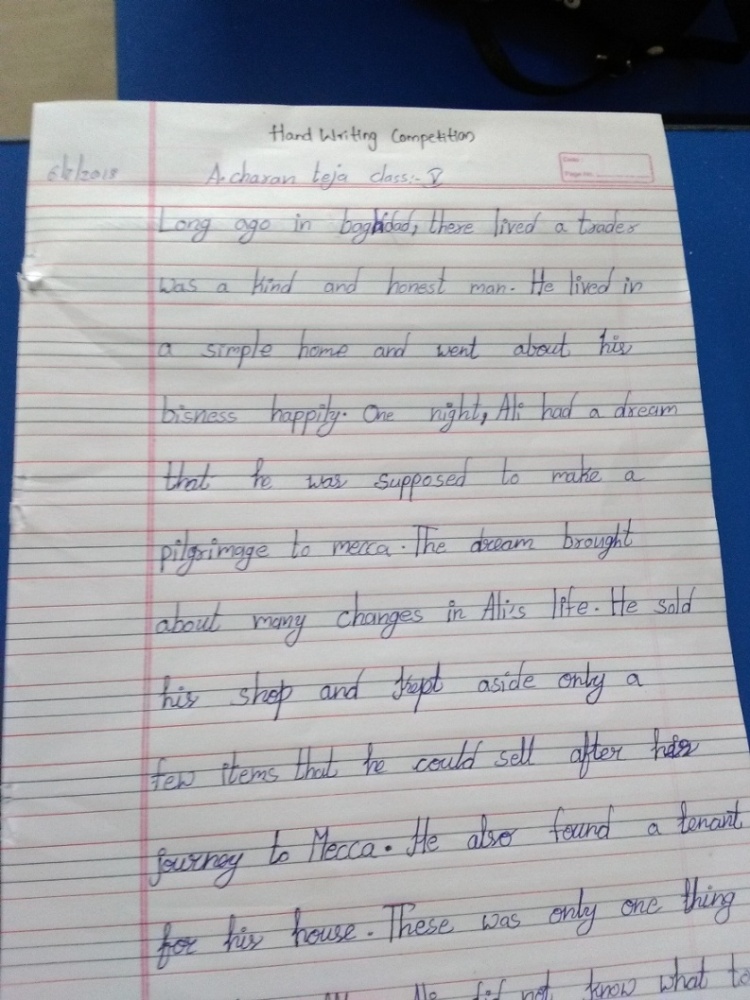 Hand Writing Competition
A. charan teja class:- V
Long ago in baghdad, there lived a trader
was a kind and honest man. He lived in
a simple home and went about his
bisness happily. One night, Ali had a dream
that he was supposed to make a
pilgrimage to mecca. The dream brought
about many changes in Ali's life. He sold
his shop and kept aside only a
few items that he could sell after his
journey to Mecca. He also found a tenant
for his house. These was only one thing
did not know what to